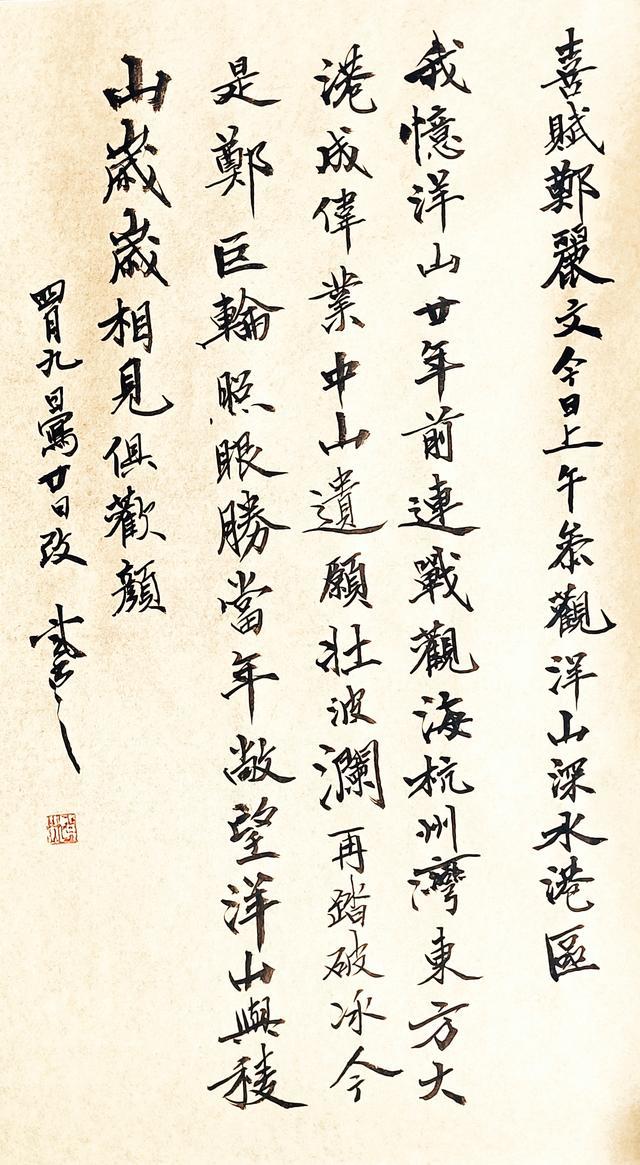 喜賦鄭麗文今日上午參觀洋山深水港區
我憶洋山廿年前連戰觀海杭州灣東方大
港成偉業中山遺願壯波瀾再踏破冰今
是鄭巨輪照眼勝當年敞望洋山與稜
山歲歲相見俱歡顏
四月九日寫廿日改